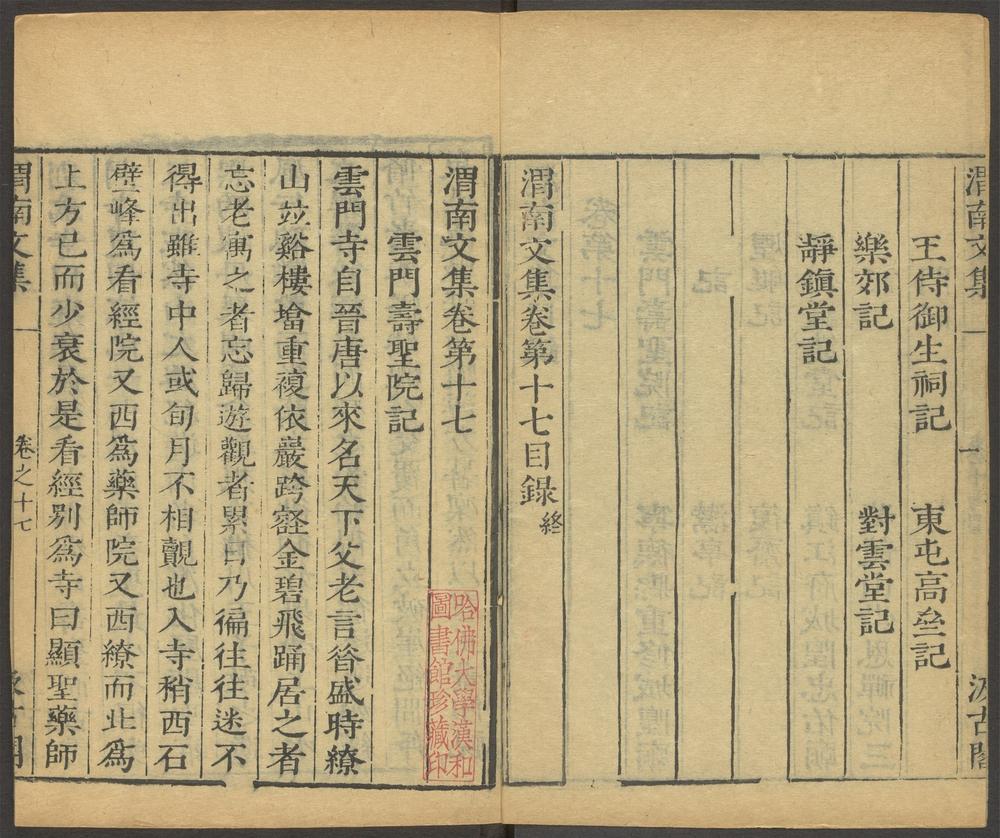 渭南文集 一 汲古閣
王侍御生祠記 東屯高壘記
樂郊記 對雲堂記
靜鎮堂記
渭南文集卷第十七目録終
渭南文集卷第十七
雲門壽聖院記
雲門寺自晉唐以來名天下父老言昝盛時繚
山竝谿樓㙮重複依巖跨壑金碧飛踊居之者
忘老寓之者忘歸遊觀者累日乃徧往往迷不
得出雖寺中人或旬月不相覿也入寺稍西石
壁峰爲看經院又西爲藥師院又西繚而北爲
上方已而少衰於是看經别爲寺曰顯聖藥師
渭南文集 卷之十七
哈佛大學漢和
圖書館珍藏印